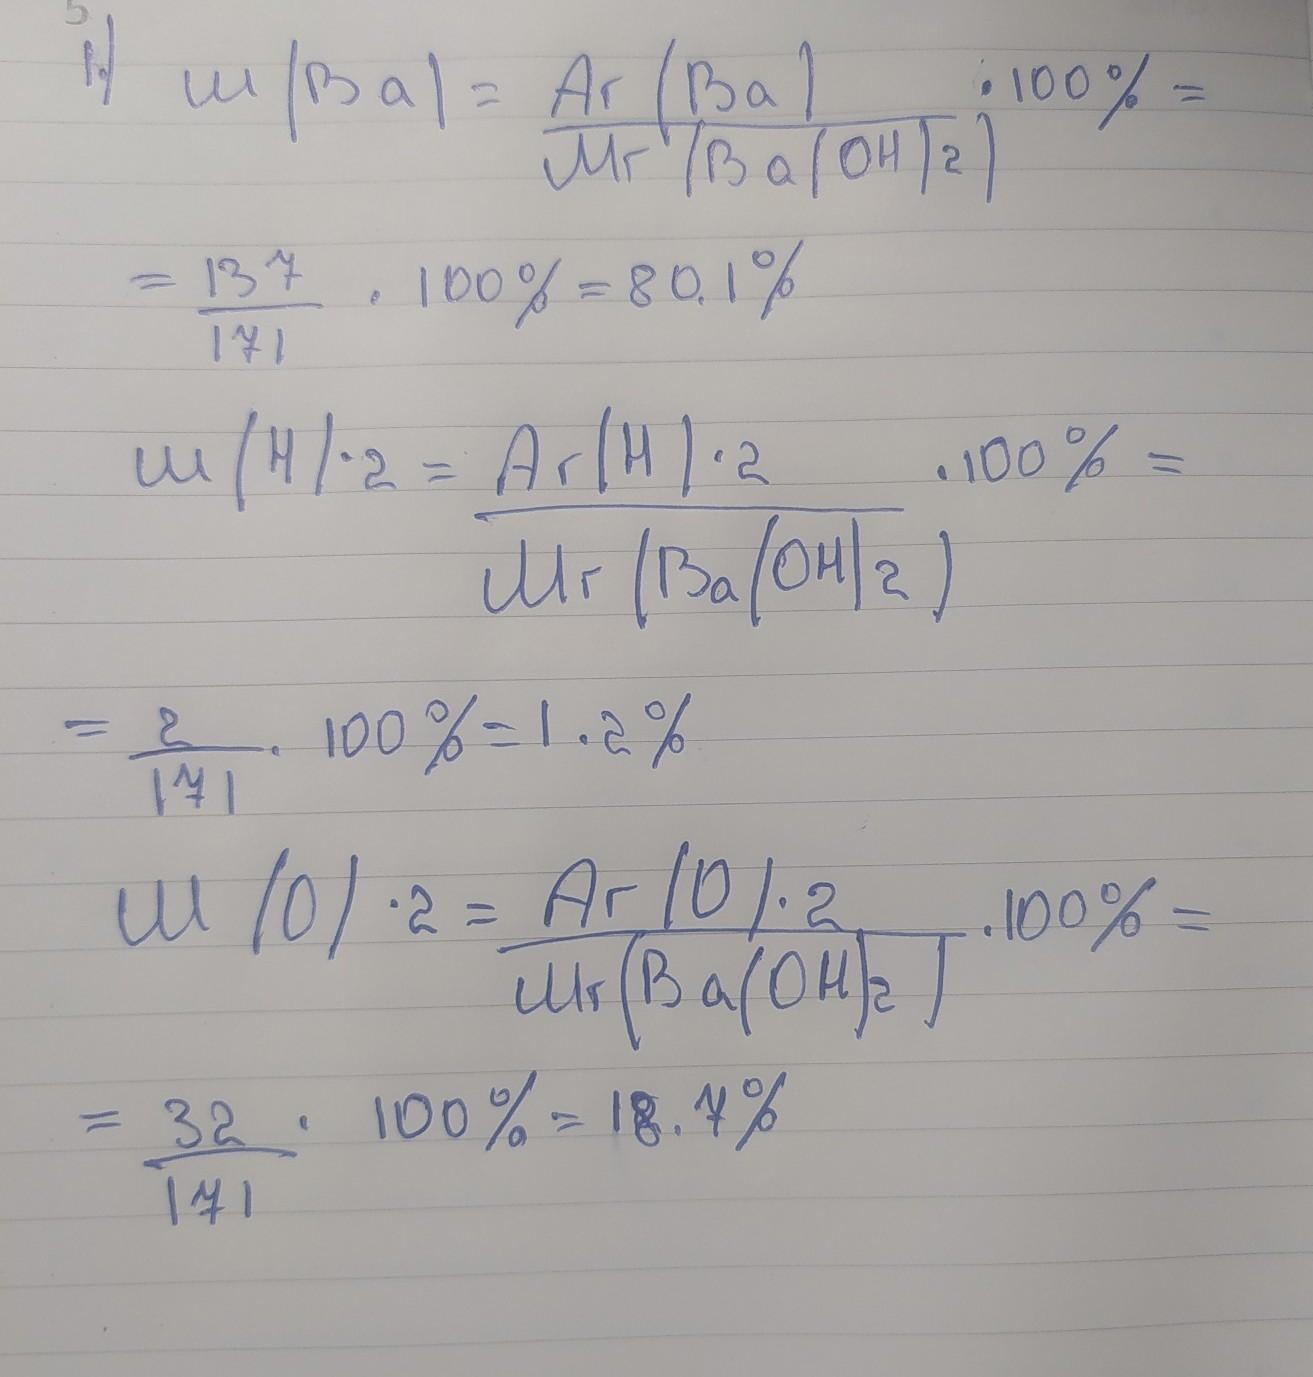 1.) w(Ba) = Ar(Ba) / Mr(Ba(OH)2) · 100% =
= 137 / 171 · 100% = 80.1%
w(H)·2 = Ar(H)·2 / Mr(Ba(OH)2) · 100% =
= 2 / 171 · 100% = 1.2%
w(O)·2 = Ar(O)·2 / Mr(Ba(OH)2) · 100% =
= 32 / 171 · 100% = 18.7%